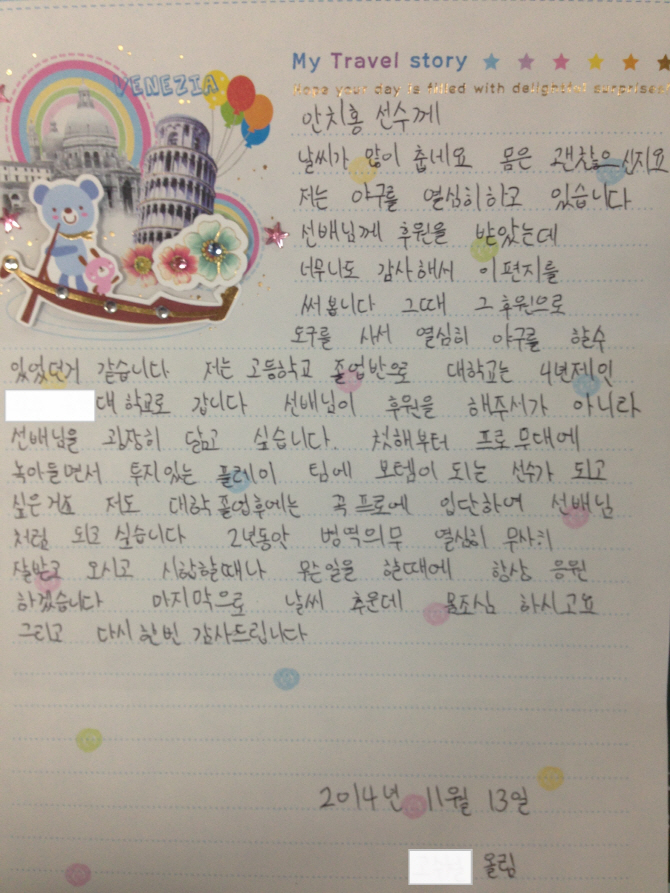 My Travel story
Hope your day is filled with delightful surprises!
VENEZIA
안치홍 선수께
날씨가 많이 춥네요 몸은 괜찮으신지요
저는 야구를 열심히하고 있습니다
선배님께 후원을 받았는데
너무나도 감사해서 이편지를
써봅니다 그때 그후원으로
도구를 사서 열심히 야구를 할수
있었던거 같습니다 저는 고등학교 졸업반으로 대학교는 4년제인
대학교로 갑니다 선배님이 후원을 해주셔가 아니라
선배님을 굉장히 닮고 싶습니다. 첫해부터 프로무대에
녹아들면서 투지있는 플레이 팀에 보템이 되는 선수가 되고
싶은거죠 저도 대학졸업후에는 꼭 프로에 입단하여 선배님
처럼 되고싶습니다 2년동안 병역의무 열심히 무사히
잘받고 오시고 시합할때나 무슨일을 할때에 항상 응원
하겠습니다 마지막으로 날씨 추운데 몸조심 하시고요
그리고 다시한번 감사드립니다
2014년 11월 13일
올림